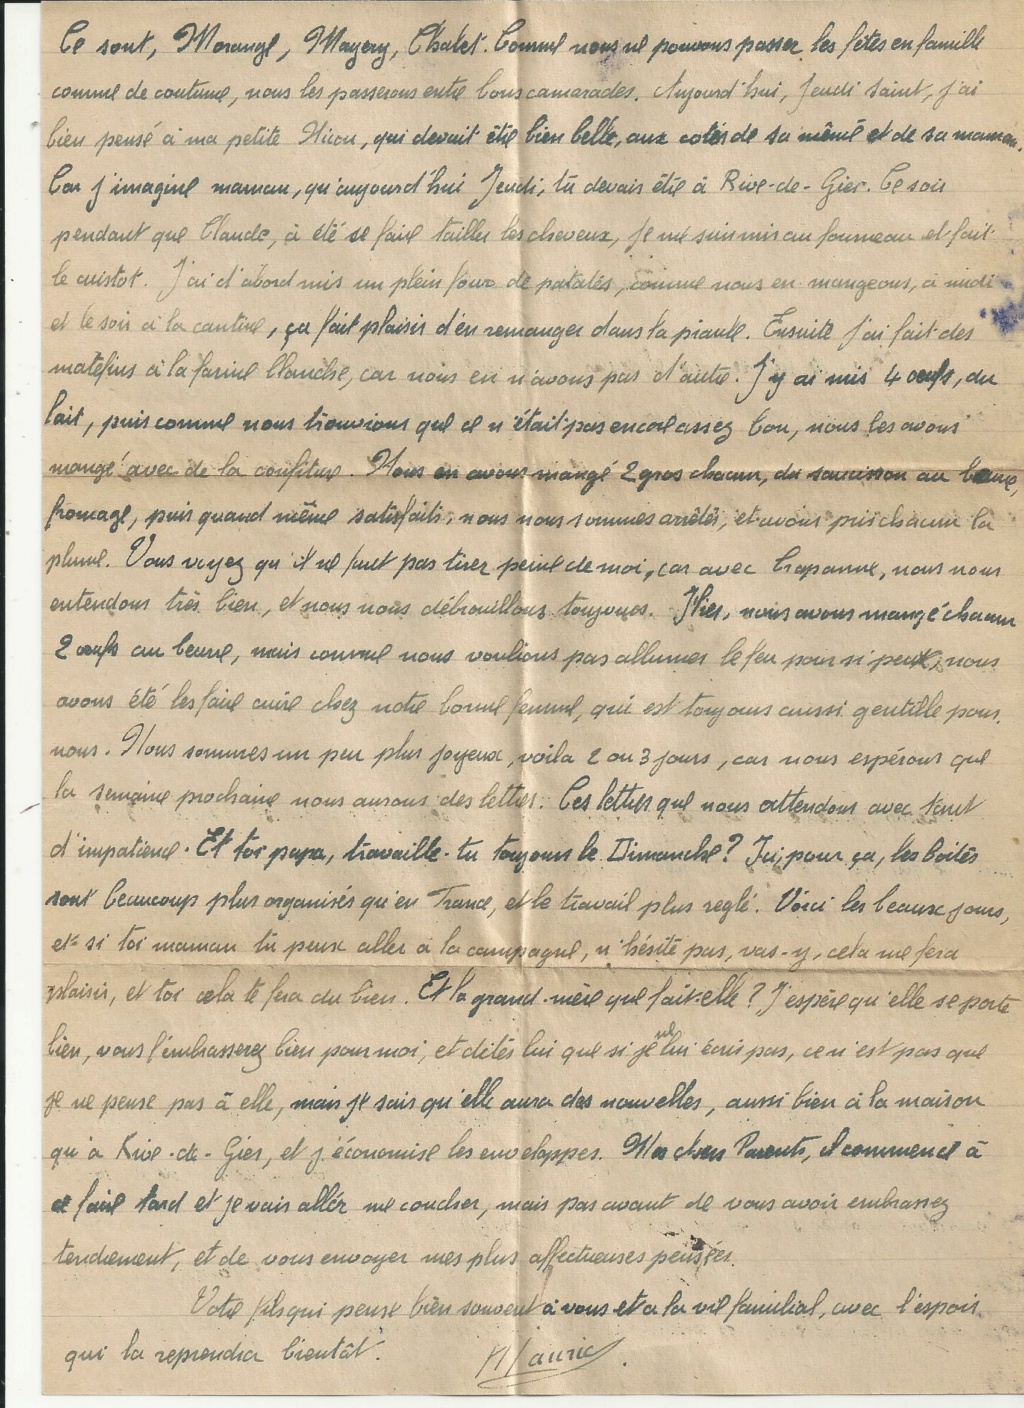 Ce sont, Morangé, Mayery, Chalet. Comme nous ne pouvons passer les fêtes en famille
comme de coutume, nous les passerons entre bons camarades. Aujourd'hui, Jeudi Saint, j'ai
bien pensé à ma petite Nicou, qui devait être bien belle, aux cotés de sa mémé et de sa maman.
Car j'imagine maman, qu'aujourd'hui Jeudi, tu devais être à Rive-de-Gier. Ce soir
pendant que Claude, à été se faire tailler les cheveux, je me suis mis au fourneau et fait
le cuistot. J'ai d'abord mis un plein four de patates, comme nous en mangeons, à midi
et le soir à la cantine, ça fait plaisir d'en remanger dans la piaule. Ensuite j'ai fait des
matefins à la farine blanche, car nous en n'avons pas d'autre. J'y ai mis 4 oeufs, du
lait, puis comme nous trouvions que ce n'était pas encore assez bon, nous les avons
mangé avec de la confiture. Nous en avons mangé 2 gros chacun, du saucisson au beurre,
fromage, puis quand même satisfaits, nous nous sommes arrêtés, et avons pris chacun la
plume. Vous voyez qu'il ne faut pas tirer peine de moi, car avec Crapanne, nous nous
entendons très bien, et nous nous débrouillons toujours. Hier, nous avons mangé chacun
2 oeufs au beurre, mais comme nous voulions pas allumer le feu pour si peu, nous
avons été les faire cuire chez notre bonne femme, qui est toujours aussi gentille pour
nous. Nous sommes un peu plus joyeux, voila 2 ou 3 jours, car nous espérons que
la semaine prochaine nous aurons des lettres. Ces lettres que nous attendons avec tant
d'impatience. Et toi papa, travaille-tu toujours le Dimanche? Ici, pour ça, les boites
sont beaucoup plus organisés qu'en France, et le travail plus reglé. Voici les beaux jours,
et si toi maman tu peux aller à la campagne, n'hésite pas, vas-y, cela me fera
plaisir, et toi cela te fera du bien. Et la grand-mère que fait-elle? J'espère qu'elle se porte
bien, vous l'embrasserez bien pour moi, et dites lui que si je ne lui écris pas, ce n'est pas que
je ne pense pas à elle, mais je sais qu'elle aura des nouvelles, aussi bien à la maison
qu'à Rive-de-Gier, et j'économise les enveloppes. Mes chers Parents, il commence à
se faire tard et je vais aller me coucher, mais pas avant de vous avoir embrassez
tendrement, et de vous envoyer mes plus affectueuses pensées.
Votre fils qui pense bien souvent à vous et à la vie familial, avec l'espoir
qui la reprendra bientôt. Mauric